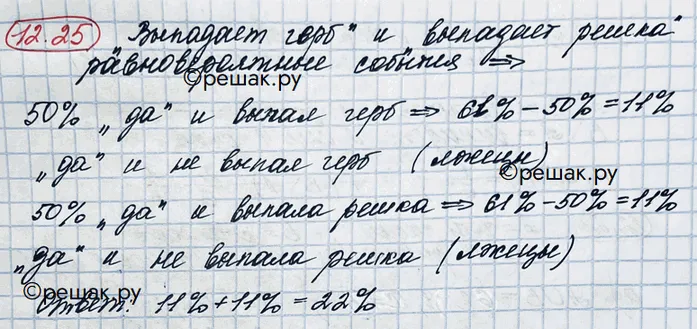 12.25 Выпадает герб" и выпадает решка"
равновероятные события ⇒
©решак.ру
50% „да" и выпал герб ⇒ 61% – 50% = 11%
„да" и не выпал герб (лжецы)
©решак.ру
50% „да" и выпала решка ⇒ 61% – 50% = 11%
„да" и не выпала решка (лжецы)
©решак.ру
Ответ: 11% + 11% = 22%